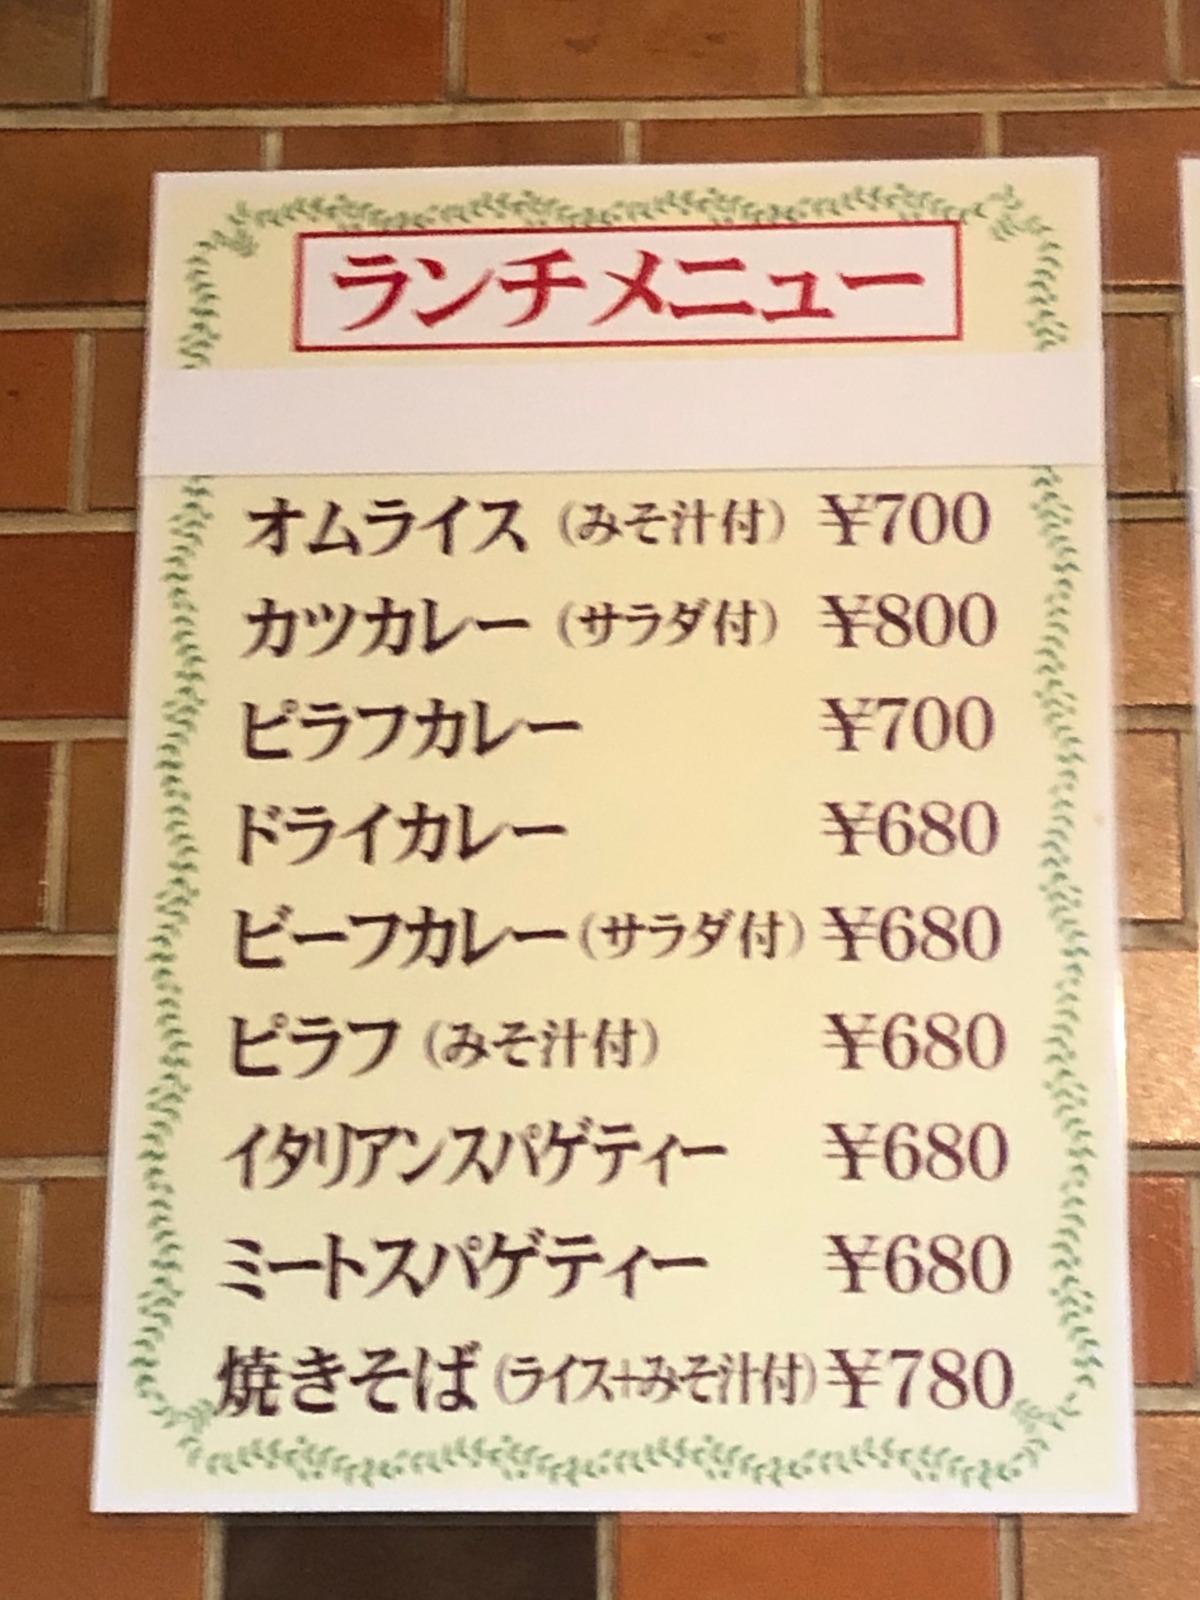 ランチメニュー
オムライス (みそ汁付) ¥700
カツカレー (サラダ付) ¥800
ピラフカレー ¥700
ドライカレー ¥680
ビーフカレー (サラダ付) ¥680
ピラフ (みそ汁付) ¥680
イタリアンスパゲティー ¥680
ミートスパゲティー ¥680
焼きそば (ライス+みそ汁付) ¥780